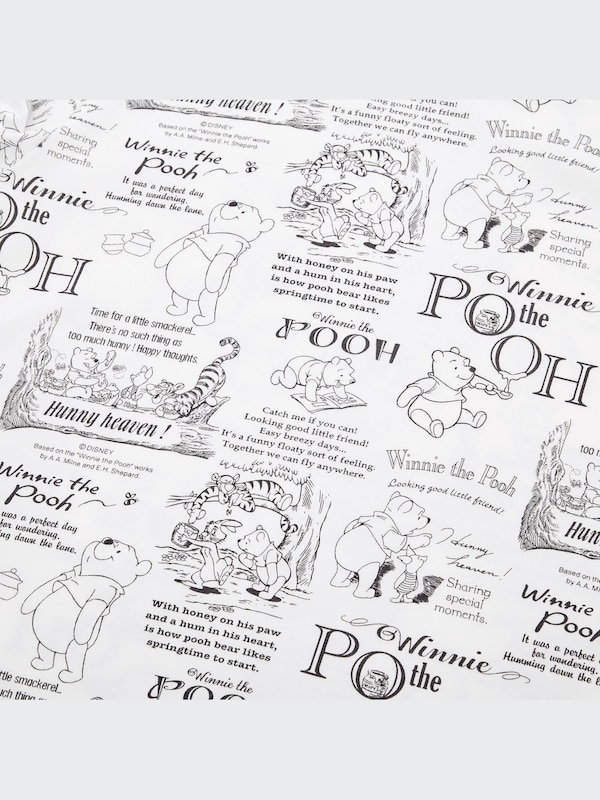 Hunny heaven !
©DISNEY
Based on the "Winnie the Pooh" works
by A.A. Milne and E.H. Shepard.
if you can!
Looking good little friend!
Easy breezy days...
It's a funny floaty sort of feeling.
Together we can fly anywhere.
Hunny
Sharing
special
moments.
Winnie the
Pooh
It was a perfect day
for wandering.
Humming down the lane.
Winnie the Pooh
Looking good little friend!
Hunny
Heaven!
Sharing
special
moments.
Winnie
the
OOH
With honey on his paw
and a hum in his heart,
is how pooh bear likes
springtime to start.
Winnie
the
POOH
Time for a little smackerel...
There's no such thing as
too much hunny ! Happy thoughts.
Hunny heaven !
©DISNEY
Based on the "Winnie the Pooh" works
by A.A. Milne and E.H. Shepard.
Winnie the
POOH
Catch me if you can!
Looking good little friend!
Easy breezy days...
It's a funny floaty sort of feeling.
Together we can fly anywhere.
Winnie the Pooh
Looking good little friend!
Hunny
Heaven!
Sharing
special
moments.
too m
Hun
Based on the
by A.A.
Winnie the
Pooh
was a perfect day
for wandering.
ming down the lane.
With honey on his paw
and a hum in his heart,
is how pooh bear likes
springtime to start.
Winnie
the
PO
Winnie the
Pooh
It was a perfect
for wandering.
Humming down the
ttle smackerel...
such thing as
Winnie the
POOH